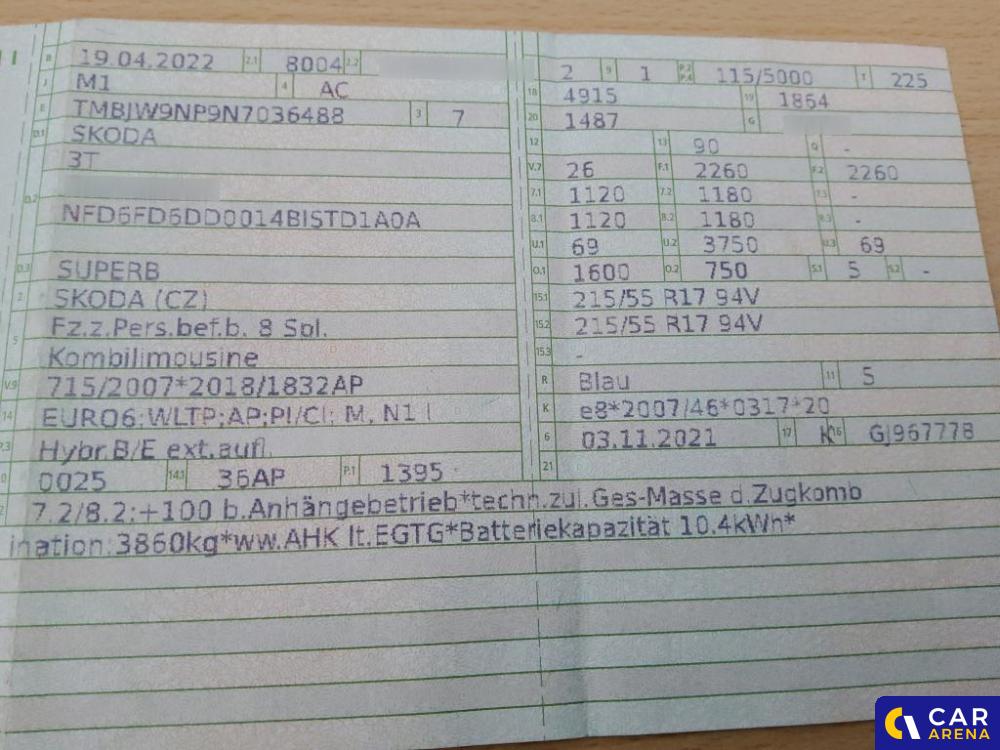 B 19.04.2022 2.1 8004 2.2
J M1 4 AC
E TMBJW9NP9N7036488 3 7
D.1 SKODA
3T
D.2
NFD6FD6DD0014BISTD1A0A
D.3 SUPERB
2 SKODA (CZ)
5 Fz.z.Pers.bef.b. 8 Spl.
Kombilimousine
V.9 715/2007*2018/1832AP
14 EURO6;WLTP;AP;PI/CI; M, N1 I
P.3 Hybr.B/E ext.aufl.
10 0025 14.1 36AP P.1 1395
22 7.2/8.2:+100 b.Anhängebetrieb*techn.zul.Ges-Masse d.Zugkomb
ination:3860kg*ww.AHK lt.EGTG*Batteriekapazität 10.4kWh*
2 9 1 P.2 P.4 115/5000 T 225
18 4915 19 1864
20 1487 G
12 13 90 Q -
V.7 26 F.1 2260 F.2 2260
7.1 1120 7.2 1180 7.3 -
8.1 1120 8.2 1180 8.3 -
U.1 69 U.2 3750 U.3 69
O.1 1600 O.2 750 S.1 5 S.2 -
15.1 215/55 R17 94V
15.2 215/55 R17 94V
15.3 -
R Blau 11 5
K e8*2007/46*0317*20
6 03.11.2021 17 K 16 GJ967778
21
CAR
ARENA